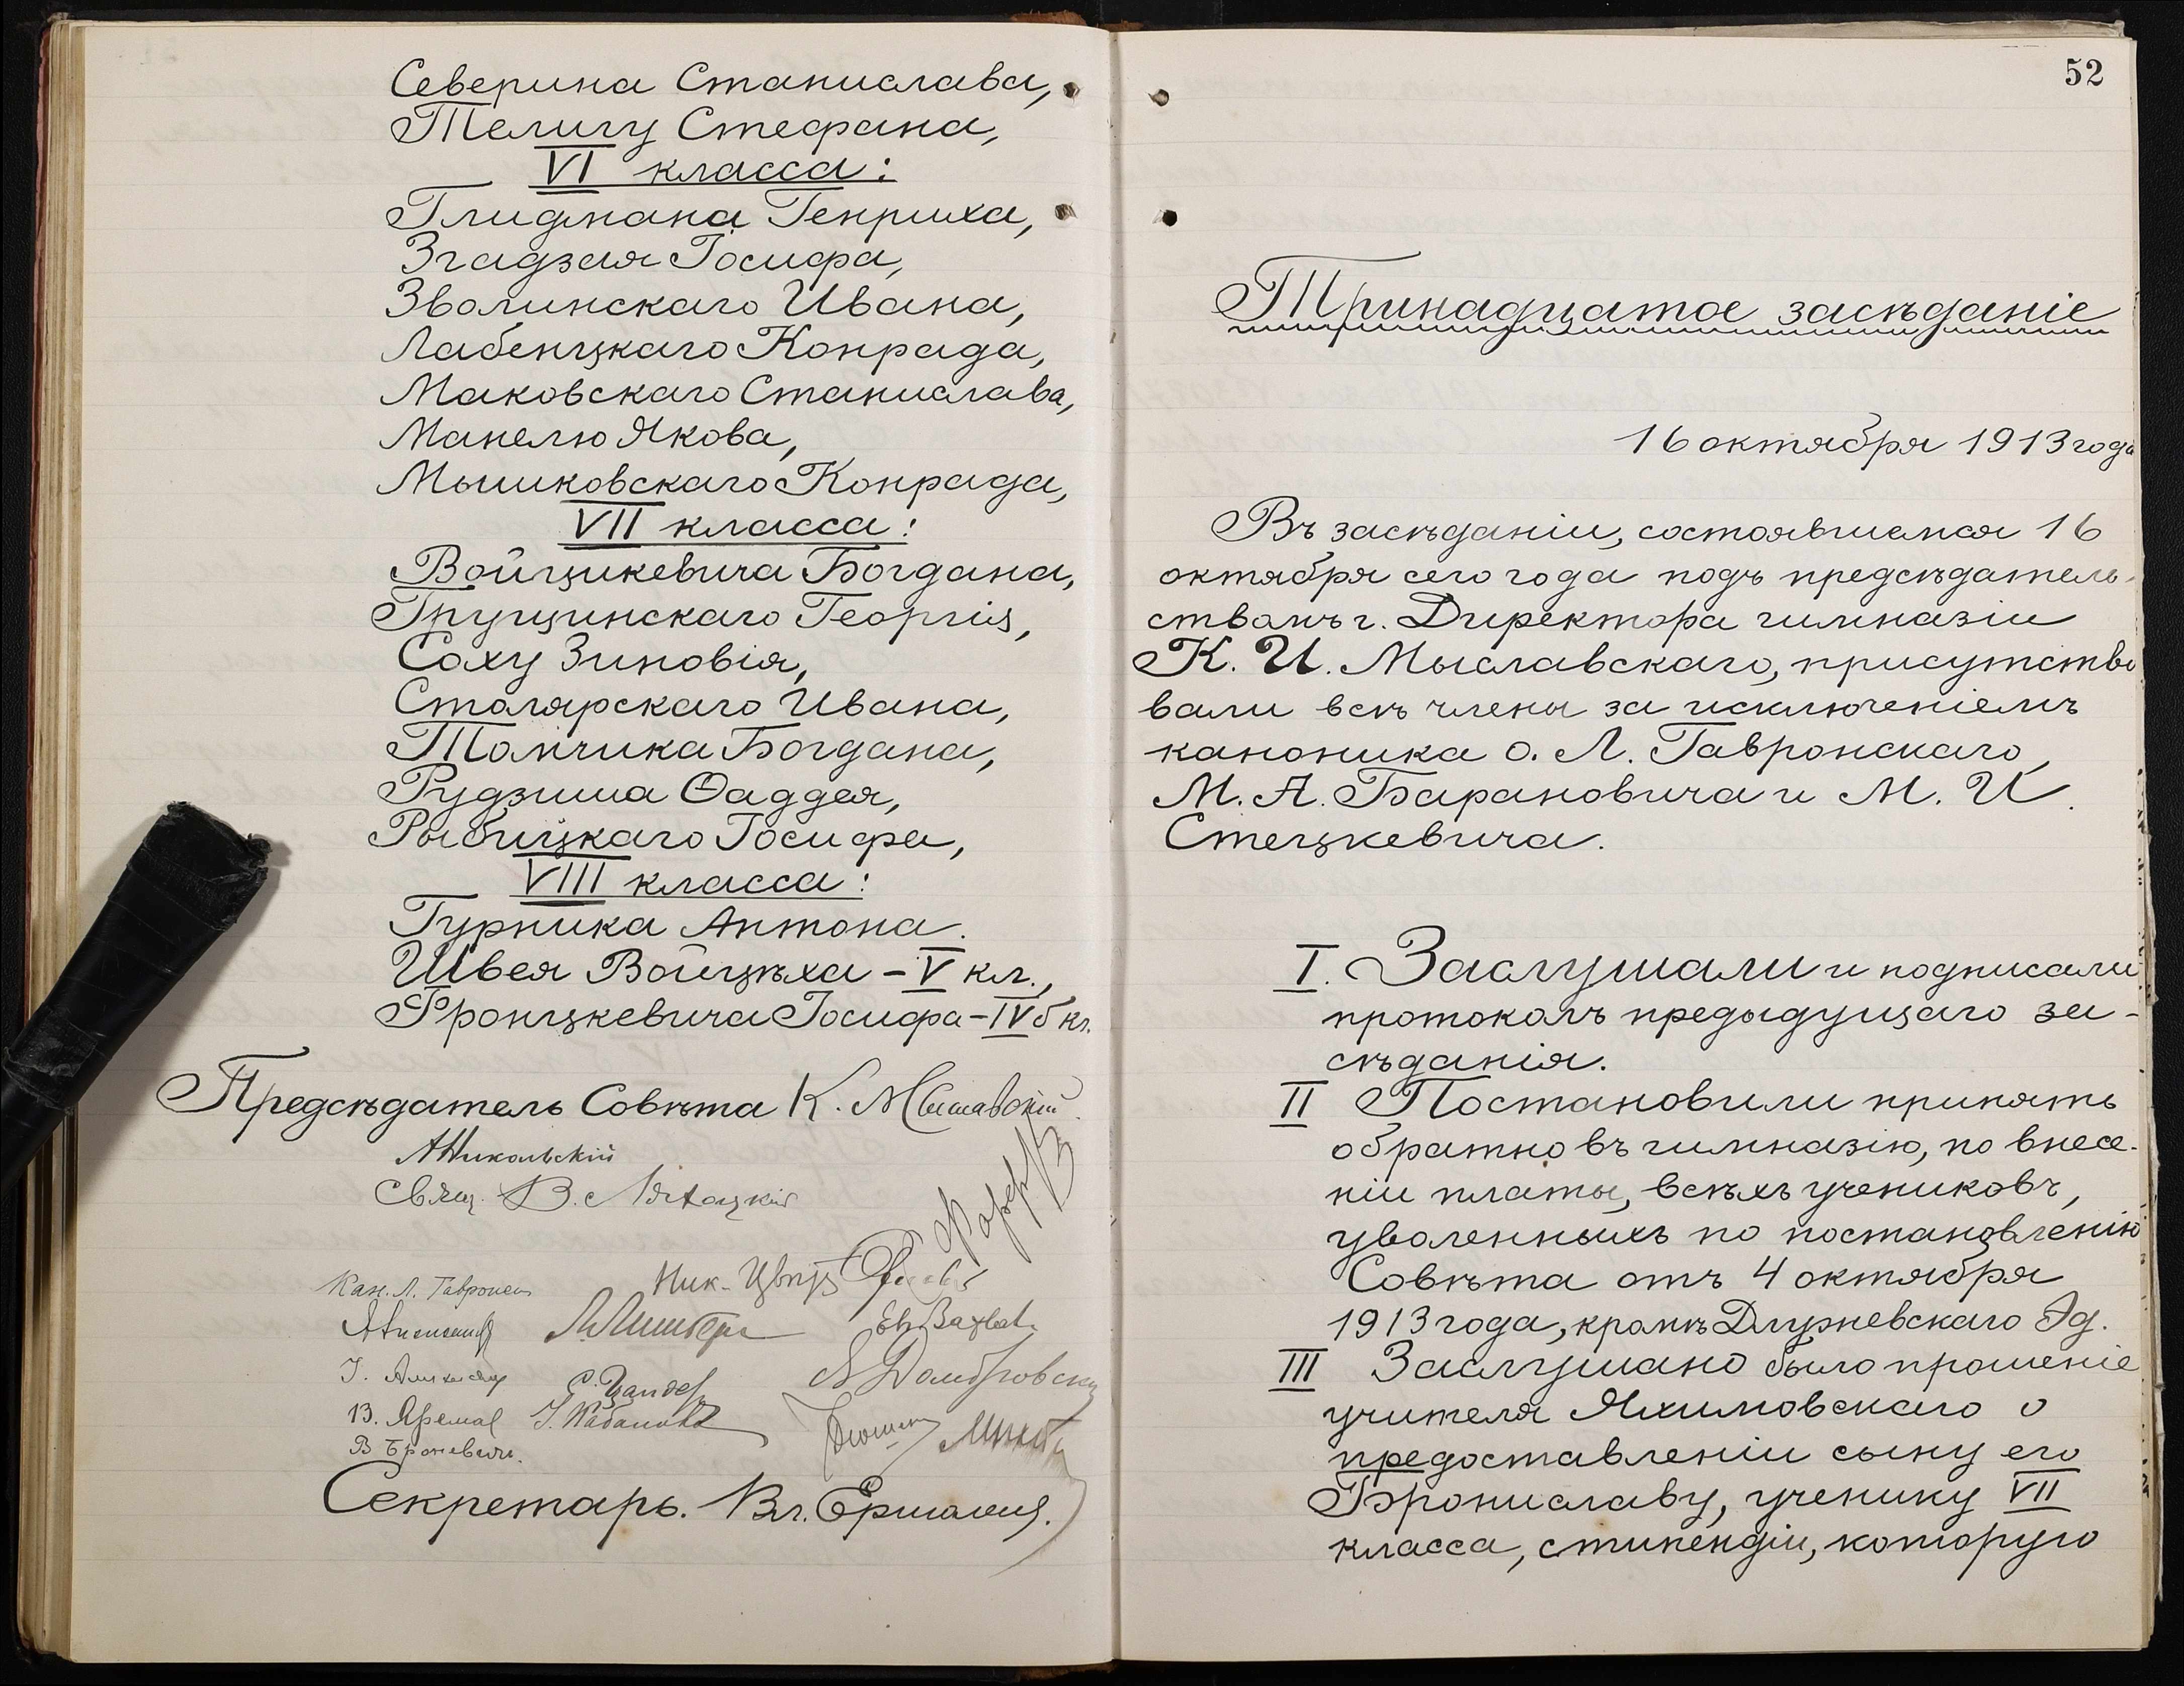 Северина Станислава,
Телигу Стефана,
VI класса:
Глидмана Генриха,
Згадзая Іосифа,
Зволинскаго Ивана,
Лабенцкаго Конрада,
Маковскаго Станислава,
Манелю Якова,
Мышковскаго Конрада,
VII класса:
Войцикевича Богдана,
Грущинскаго Георгія,
Соху Зиновія,
Столярскаго Ивана,
Томчика Богдана,
Рудзиша Ѳаддея,
Рыбицкаго Іосифа,
VIII класса:
Гурника Антона.
Швея Войцѣха - V кл.,
Фронцкевича Іосифа - IV б кл.
Предсѣдатель Совѣта К. Мыславскій
А Никольскій
Свящ. В.
Кан. Л. Гавронск
Ник.
А Домбровск
С. Цандер
В.
В Броневск
Секретарь. Вл.
52
Тринадцатое засѣданіе
16 октября 1913 года
Въ засѣданіи, состоявшемся 16
октября сего года подъ предсѣдатель-
ствомъ г. Директора гимназіи
К. И. Мыславскаго, присутство
вали всѣ члены за исключеніемъ
каноника о. Л. Гавронскаго,
М. А. Барановича и М. И.
Стецкевича.
I. Заслушали и подписали
протоколъ предыдущаго за-
сѣданія.
II Постановили принять
обратно въ гимназію, по внесе-
ніи платы, всѣхъ учениковъ,
уволенныхъ по постановленію
Совѣта отъ 4 октября
1913 года, кромѣ Длужневскаго Эд.
III Заслушано было прошеніе
учителя Яхимовскаго о
предоставленіи сыну его
Брониславу, ученику VII
класса, стипендіи, которую